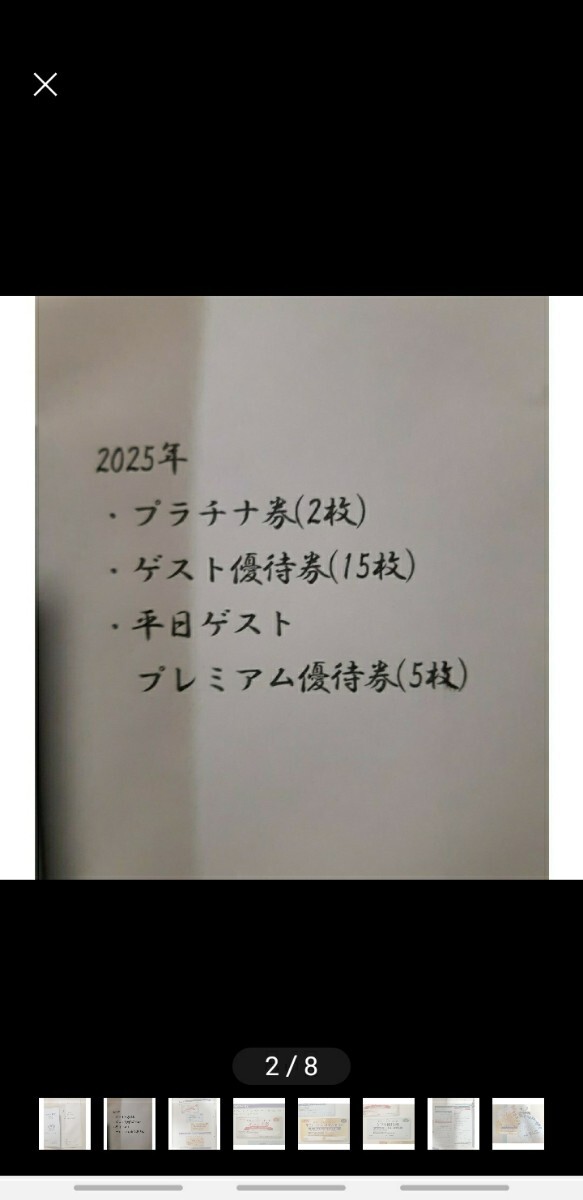 2025年
・プラチナ券(2枚)
・ゲスト優待券(15枚)
・平日ゲスト
プレミアム優待券(5枚)
2/8